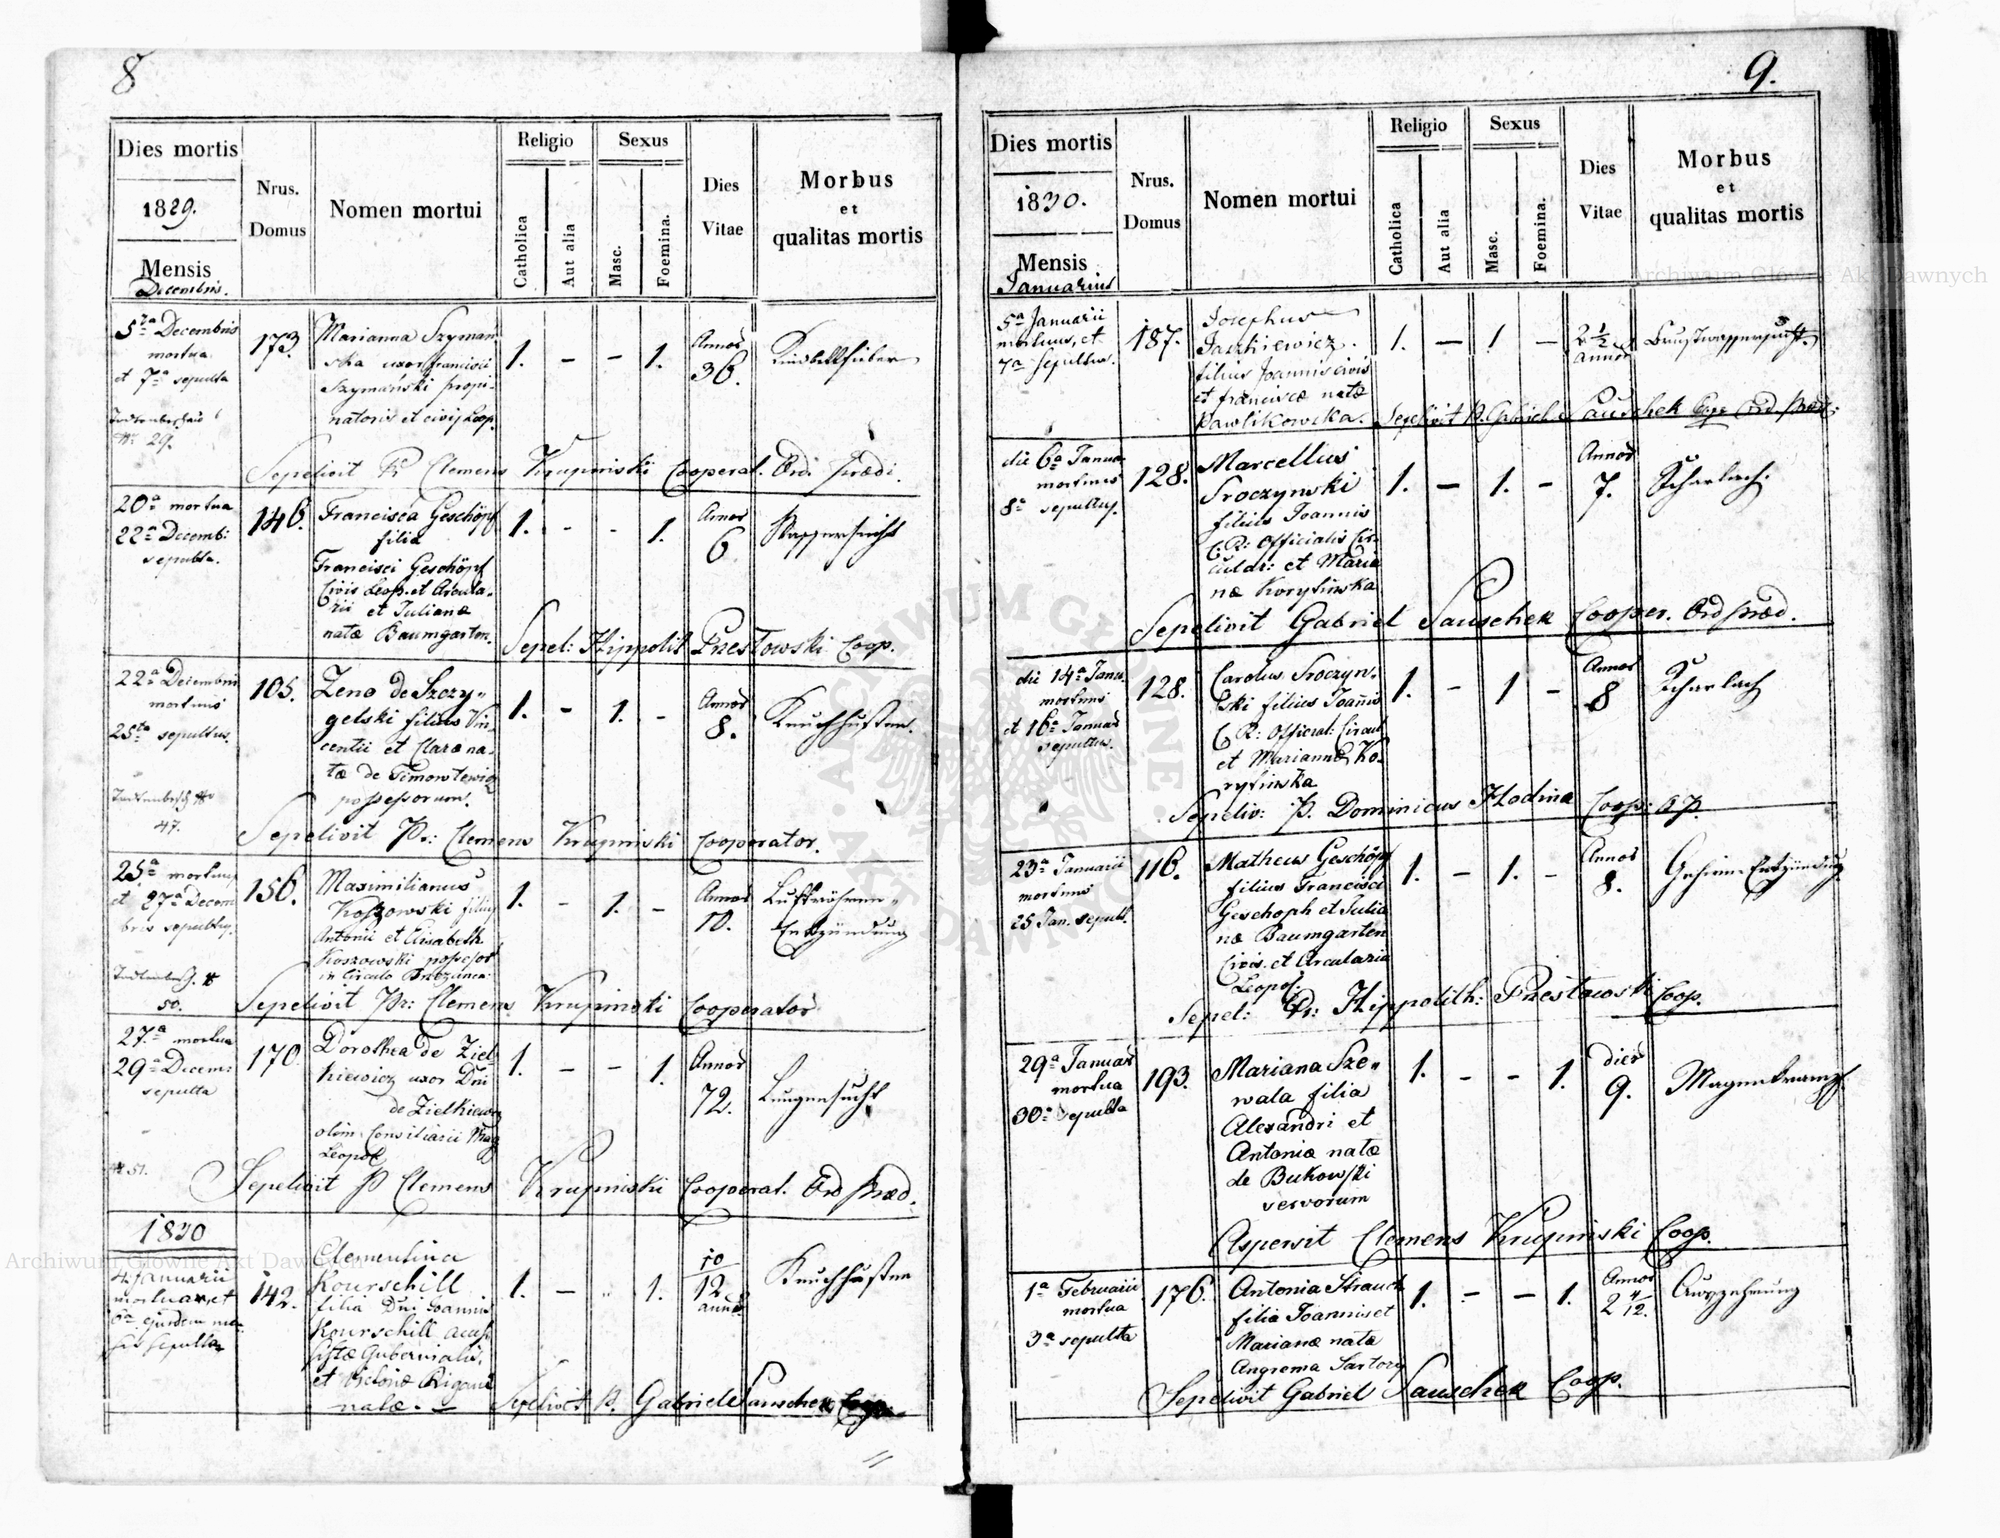 8
Dies mortis
1829.
Mensis
Decembris.
Nrus.
Domus
Nomen mortui
Religio
Catholica
Aut alia
Sexus
Masc.
Foemina.
Dies
Vitae
Morbus
et
qualitas mortis
5ta Decembris
mortua
et 7a sepulta
№ 29.
173.
Marianna Szyman
ska uxor francisci
Szymański propi-
natoris et civis Leop.
1. - - 1.
Annos
36.
Kindbettfieber
Sepelivit Pr Clemens Krupinski Cooperat. Ord. Præd.
20a mortua
22a Decemb:
sepulta.
146.
Francisca Geschöpf
filia
Francisci Geschöpf
Civis Leop. et Arcula-
rii et Julianæ
natæ Baumgarten.
1. - - 1.
Annos
6
Wassersucht
Sepel: Hippolit Pnestowski Coop.
22a Decembris
mortuus
25ta sepultus.
47.
105.
Zeno de Szczy-
gelski filius Vin-
centii et Claræ na-
tæ de
possessorum.
1. - 1. -
Annos
8.
Keuchhusten.
Sepelivit Pr: Clemens Krupinski Cooperator.
25a mortuus
et 27a Decem
bris sepultus.
50.
156.
Maximilianus
Koszowski filius
Antonii et Elisabeth
Koszowski possesor
in Circulo
1. - 1. -
Annos
10.
Luftröhren-
Entzündung
Sepelivit Pr: Clemens Krupinski Cooperator
27.a mortua
29a Decem:
sepulta
№ 51.
170.
Dorothea de Ziel-
kiewicz uxor Dni
de Zielkiewicz
olim Consiliarii Mag
Leopol
1. - - 1.
Annos
72.
Lungensucht
Sepelivit P Clemens Krupinski Cooperat. Ord Præd.
1830
4 Januarii
mortua et
6a ejusdem men
sis sepulta
142.
Clementina
Kourschill
filia Dni Joannis
Kourschill acces
sistæ Gubernialis,
et
natæ. -
1. - 1.
10
12
annos
Keuchhusten
Sepelivit P. Gabriel Sauschek Coop.
9.
Dies mortis
1830.
Mensis
Januarius
Nrus.
Domus
Nomen mortui
Religio
Catholica
Aut alia
Sexus
Masc.
Foemina.
Dies
Vitae
Morbus
et
qualitas mortis
5a Januarii
mortuus, et
7a sepultus.
187.
Josephus
Jackiewicz.
filius Joannis civis
et franciscæ natæ
Pawlikowska.
1. - 1. -
2 1/2
annos
Brustwassersucht
Sepelivit P. Gabriel Sauschek Coop Ord Præd:
die 6a Janua
mortuus
8a sepultus.
128.
Marcellus
Sroczynski
filius Joannis
C: R: Officialis Cir-
cular: et Maria
næ Korytinska
1. - 1. -
Annos
7.
Scharlach.
Sepelivit Gabriel Sauschek Cooper. Ord Præd.
die 14a Janu.
mortuus
et 16a Januar
sepultus.
128.
Carolus Sroczyn-
ski filius Joannis
C. R: Official: Circul
et Mariannæ Ko-
rytinska
1. - 1 -
Annos
8
Scharlach
Sepeliv: P. Dominicus Hodina Coop: O. P.
23a Januarii
mortuus
25 Jan. sepult.
116.
Matheus Geschöpf
filius Francisci
Geschoph et Julia
næ Baumgarten
Civis et Arcularii
Leopol.
1. - 1. -
Annos
8.
Gehirn Entzündung
Sepel: Pr: Hippolith: Pnestowski Coop.
29a Januar
mortua
30a sepulta
193.
Mariana Sze-
wala filia
Alexandri et
Antoniæ natæ
de Bukowski
servorum
1. - - 1.
dies
9.
Magenkrampf.
Aspersit Clemens Krupinski Coop.
1a Februarii
mortua
3a sepulta
176.
Antonia Strauch
filia Joannis et
Marianæ natæ
Angrema Sartory
1. - - 1.
Annos
2 4/12.
Auszehrung
Sepelivit Gabriel Sauschek Coop.
ARCHIWUM GŁÓWNE AKT DAWNYCH
Archiwum Główne Akt Dawnych
Archiwum Główne Akt Dawnych